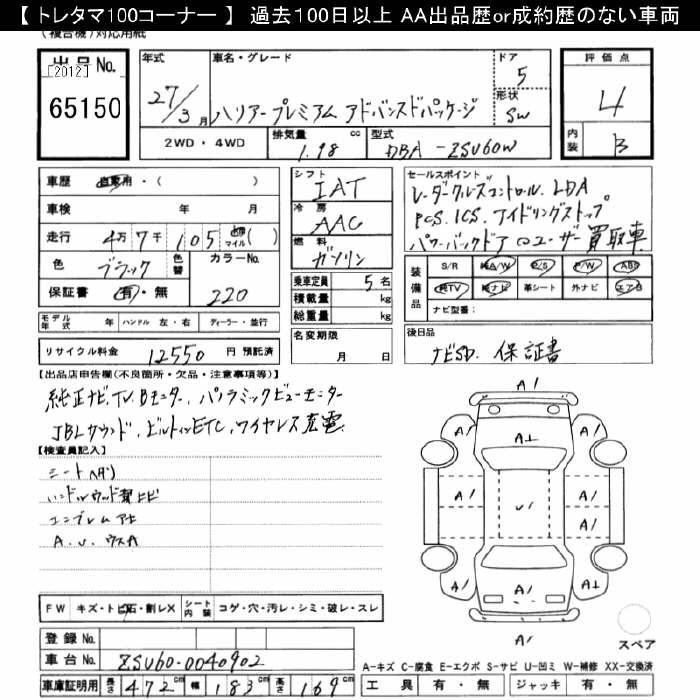 【 トレタマ100コーナー 】 過去100日以上 AA出品歴or成約歴のない車両
(複合機)対応用紙
出品No. [2012] 65150
年式 27/3月
車名・グレード ハリアープレミアム アドバンスドパッケージ
ドア 5
形状 SW
評価点 4
内装 B
2WD・4WD 排気量 1.98 cc 型式 DBA-ZSU60W
車歴 自家用・( )
車検 年 月
走行 4万7千105 マイル( )
色 ブラック 色替 カラーNo. 220
保証書 有・無
モデル年式 年 ハンドル 左・右 ディーラー・並行
リサイクル料金 12550 円 預託済
シフト IAT
冷房 AAC
燃料 ガソリン
乗車定員 5 名
積載量 kg
総重量 kg
名変期限
月 日
セールスポイント
レーダークルーズコントロール. LDA
PCS. ICS. アイドリングストップ
パワーバックドア ユーザー買取車
装備品 S/R 純A/W P/S P/W ABS
純TV 純ナビ 革シート 外ナビ エアB
ナビ型番:
後日品
ナビSD. 保証書
【出品店申告欄(不良箇所・欠品・注意事項等)】
純正ナビ.TV.Bモニター. パノラミックビューモニター
JBLサウンド. ビルトインETC. ワイヤレス充電
【検査員記入】
シートハゲ)
ハンドルウッド部ヒビ
エンブレム
A.U.
A1
A1 A1 A1
A1 U1 A1
A1 A1
A1 A1 A1
A1
スペア
FW キズ・トビ石・割レX シート内装 コゲ・穴・汚レ・シミ・破レ・スレ
登録No.
車台No. ZSU60-0040902
車庫証明用 長さ 472cm 幅 183cm 高さ 169cm
A-キズ C-腐食 E-エクボ S-サビ U-凹ミ W-補修 XX-交換済
工具 有・無 ジャッキ 有・無